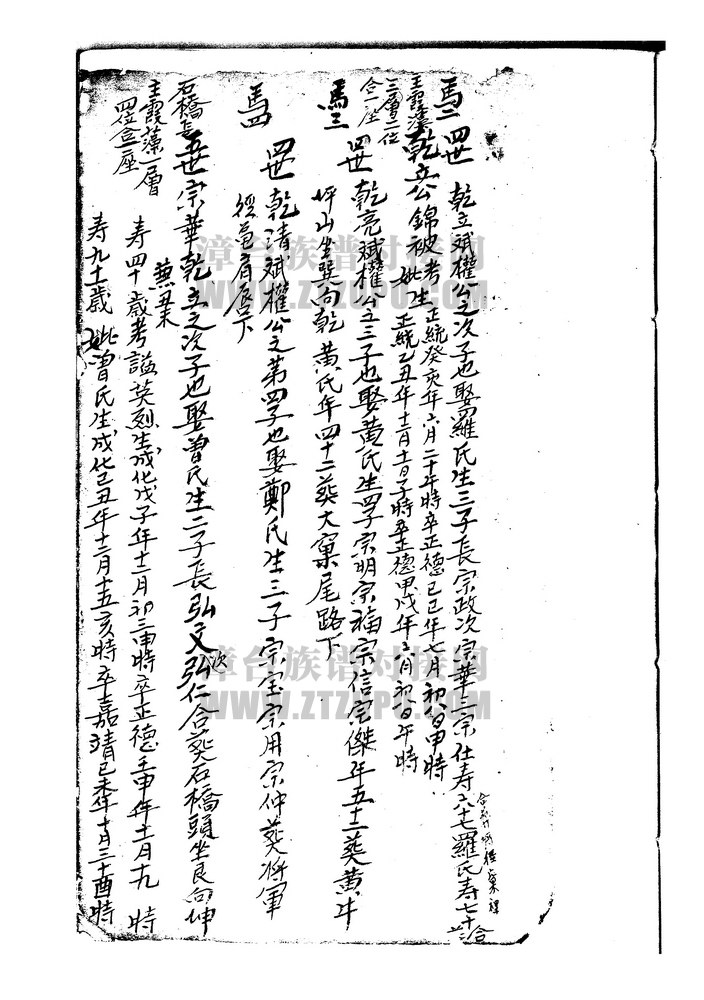 馬二 四世 乾立斌權公之次子也娶羅氏生三子長宗政次宗華三宗仕寿六十七羅氏寿七十三合
乾立公錦被考生正統癸亥年六月二十午時卒正德己巳年七月初八日申時
妣生正統乙丑年十二月十一日子時卒正德甲戌年六月初八日午時
主霞藻
三層二位
合一座
馬三 四世 乾亮斌權公之三子也娶黃氏生四子宗明宗福宗信宗傑年五十三葬黃牛
坪山坐巽向乾黃氏年四十二葬大窠尾路下
馬四 四世 乾清斌權公之第四子也娶鄭氏生三子宗宝宗用宗仲葬將軍
石橋長 五世 宗華乾立之次子也娶曾氏生二子長弘文次弘仁合葬石橋頭坐艮向坤
主霞藻一層
四位合一座
寿四十歲考諡英烈生成化戊子年十二月初三申時卒正德壬申年十二月十九 時
寿九十一歲妣曾氏生成化己丑年十二月十五亥時卒嘉靖己未年十月三十酉時
漳台族谱对接网
WWW.ZTZUPU.COM
漳台族谱对接网
WWW.ZTZUPU.COM